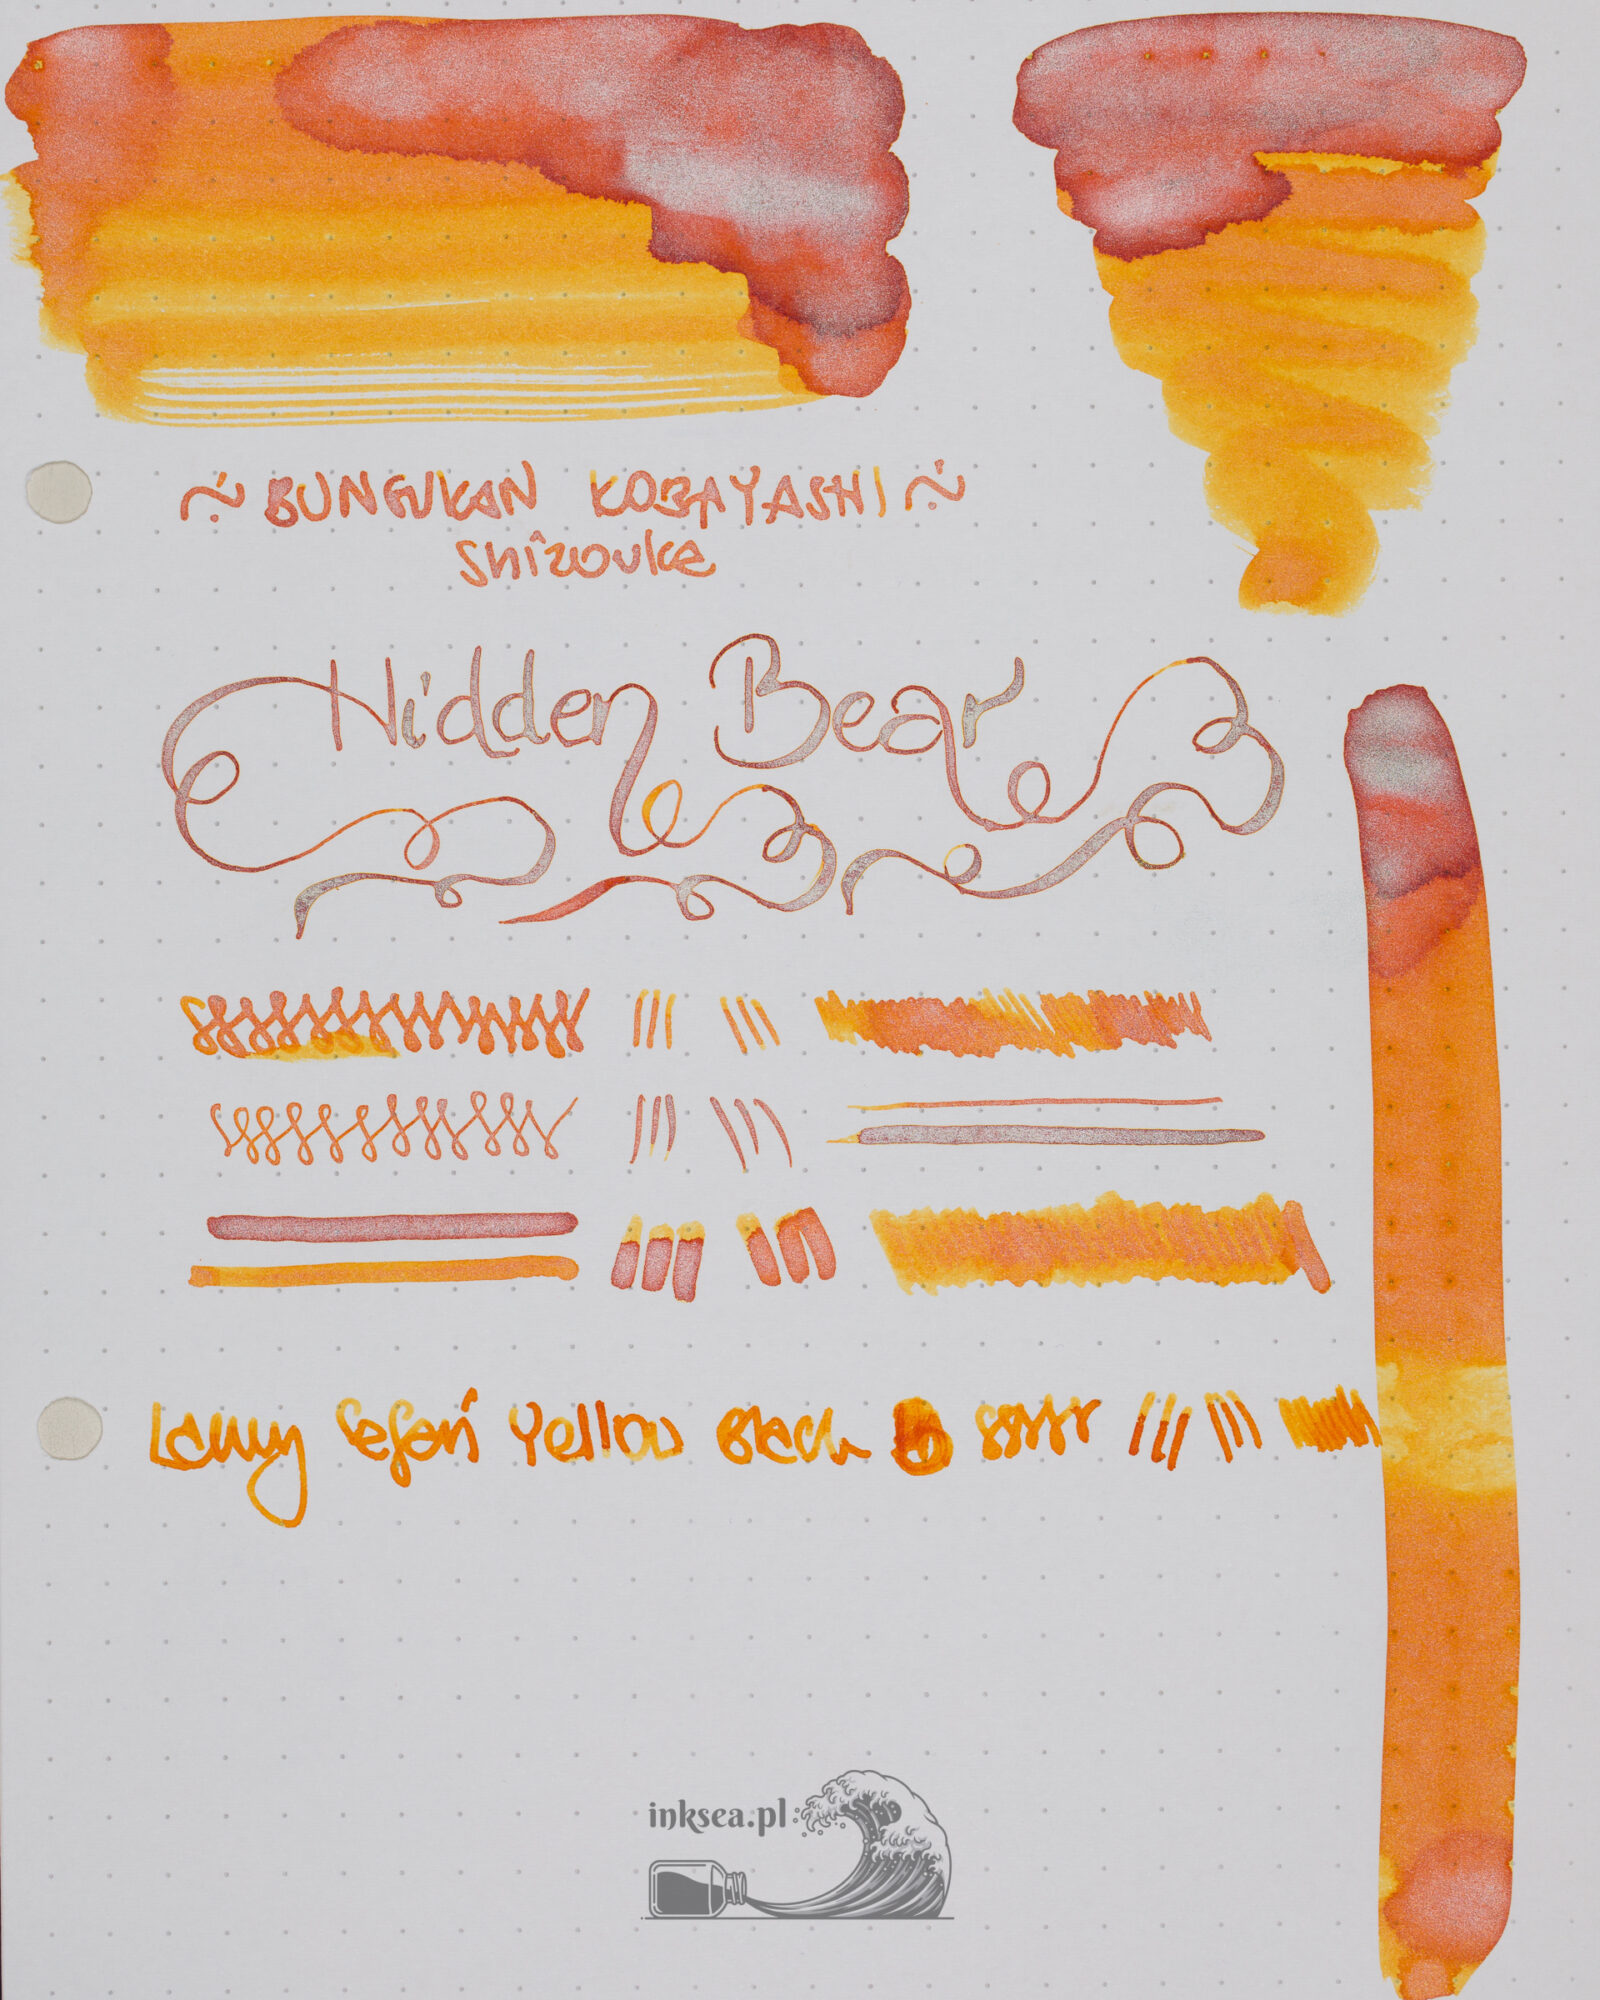 ~ BUNGUKAN KOBAYASHI ~
Shizouka
Hidden Bear
Lamy Safari Yellow Black B
inksea.pl